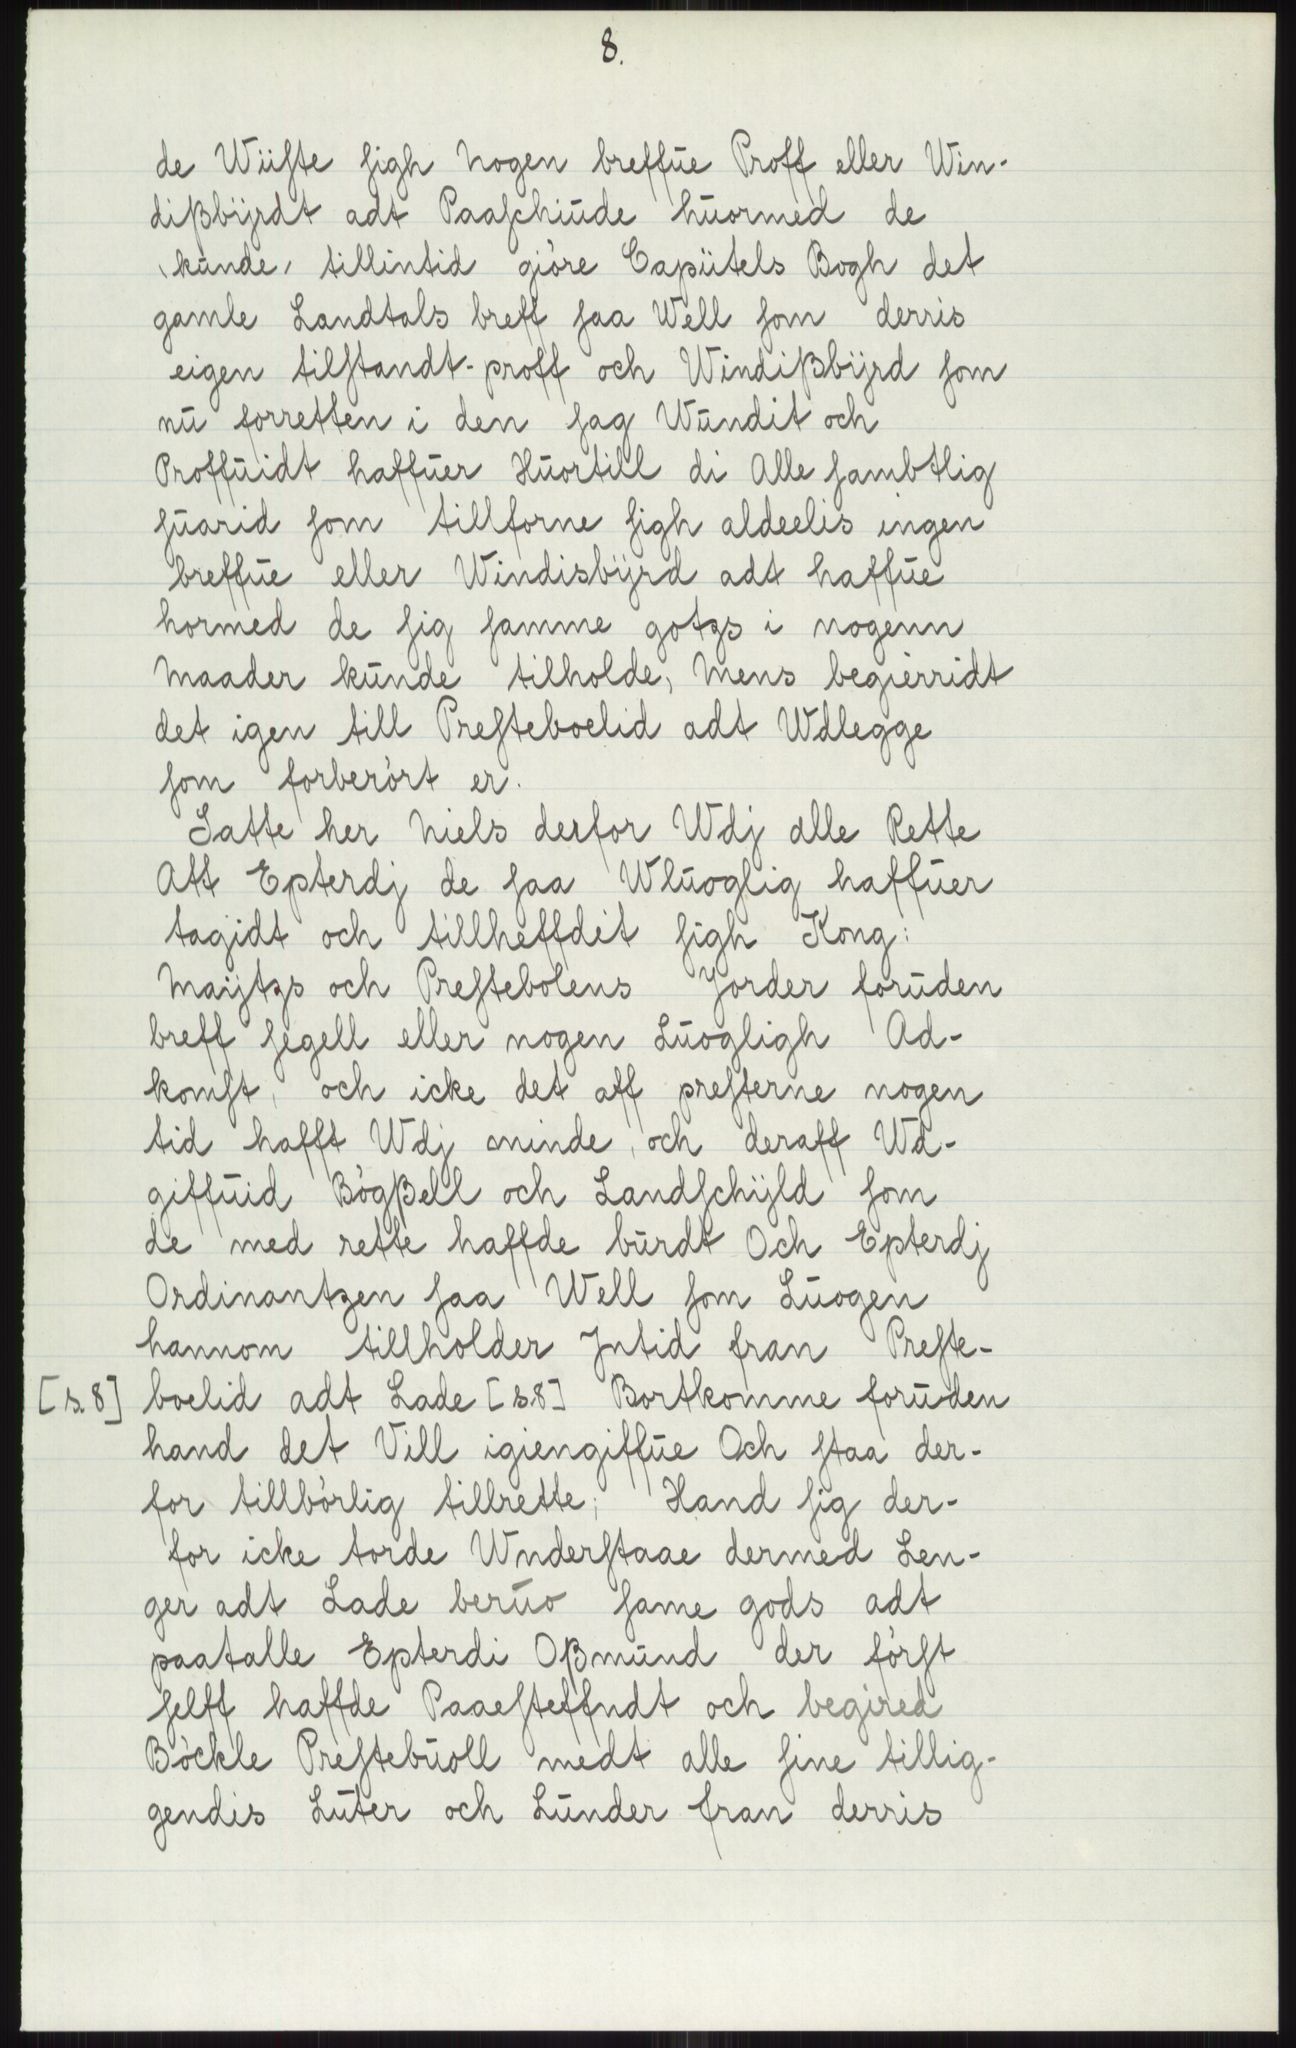 8.
de Wüste sigh Nogen breffue Proff eller Win-
dißbijrdt adt Paaschiude huormed de
kunde, tillintid giøre Capütels Bogh det
gamle Landtals breff saa Well som derris
eigen tilstandt-proff och Windißbijrd som
nu forretten i den sag Wundit och
Proffuidt haffuer Huortill di Alle sambtlig
suarid som tillforne sigh aldeelis ingen
breffue eller Windisbijrd adt haffue
hormed de sig samme gotzs i nogenn
Maader kunde tilholde, Mens begierridt
det igen till Presteboelid adt Wdlegge
som forberørt er.
Satte her Niels derfor Wdj alle Rette
Att Epterdj de saa Wluoglig haffuer
tagidt och tillheffdet sigh Kong:
Maijtzs och Prestebolens Jorder foruden
breff segell eller nogen Luogligh Ad-
komst, och icke det aff presterne nogen
tid hafft Wdj minde, och deraff Wd-
giffuid Bøgßell och Landschijld som
de med rette haffde burdt Och Epterdj
Ordinantzen saa Well som Luogen
hannom tillholder Jntid fran Preste-
[s.8] boelid adt Lade [s.8] Bortkomme foruden
hand det Vill igiengiffue Och staa der-
for tillbørlig tillrette; Hand sig der-
for icke torde Wnderstaae dermed Len-
ger adt Lade beruo same gods adt
paatalle Epterdi Oßmund der først
selff haffde Paaesteffndt och begired
Bøckle Prestebuoll medt alle sine tillig-
gendis Luter och Lunder fran derris